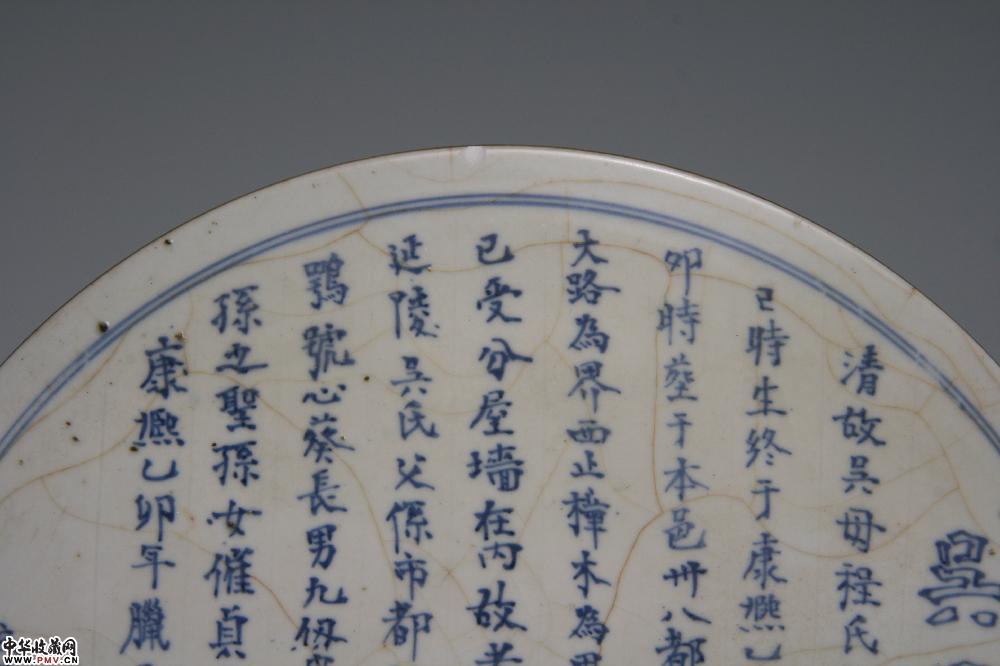 清故吳母程氏
巳時生終于康熈乙
卯時塟于本邑卅八都
大路為界西止樟木為界
已受分屋墻在內故
延陵吳氏父係市都
鶚號心葵長男九
孫㞢聖孫女催貞
康熈乙卯年臘
中华收藏网
www.PMV.cn